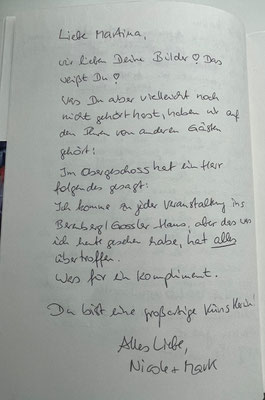 Liebe Martina,
wir lieben Deine Bilder! Das
weißt Du!
Was Du aber vielleicht noch
nicht gehört hast, haben wir auf
den von anderen Gästen
gehört:
Im Obergeschoss hat ein Herr
folgendes gesagt:
Ich komme zu jeder Veranstaltung ins
Berenberg/Gossler Haus, aber das was
ich heute gesehen habe, hat alles
übertroffen.
Was für ein Kompliment.
Du bist eine großartige Künstlerin!
Alles Liebe,
Nicole + Mark